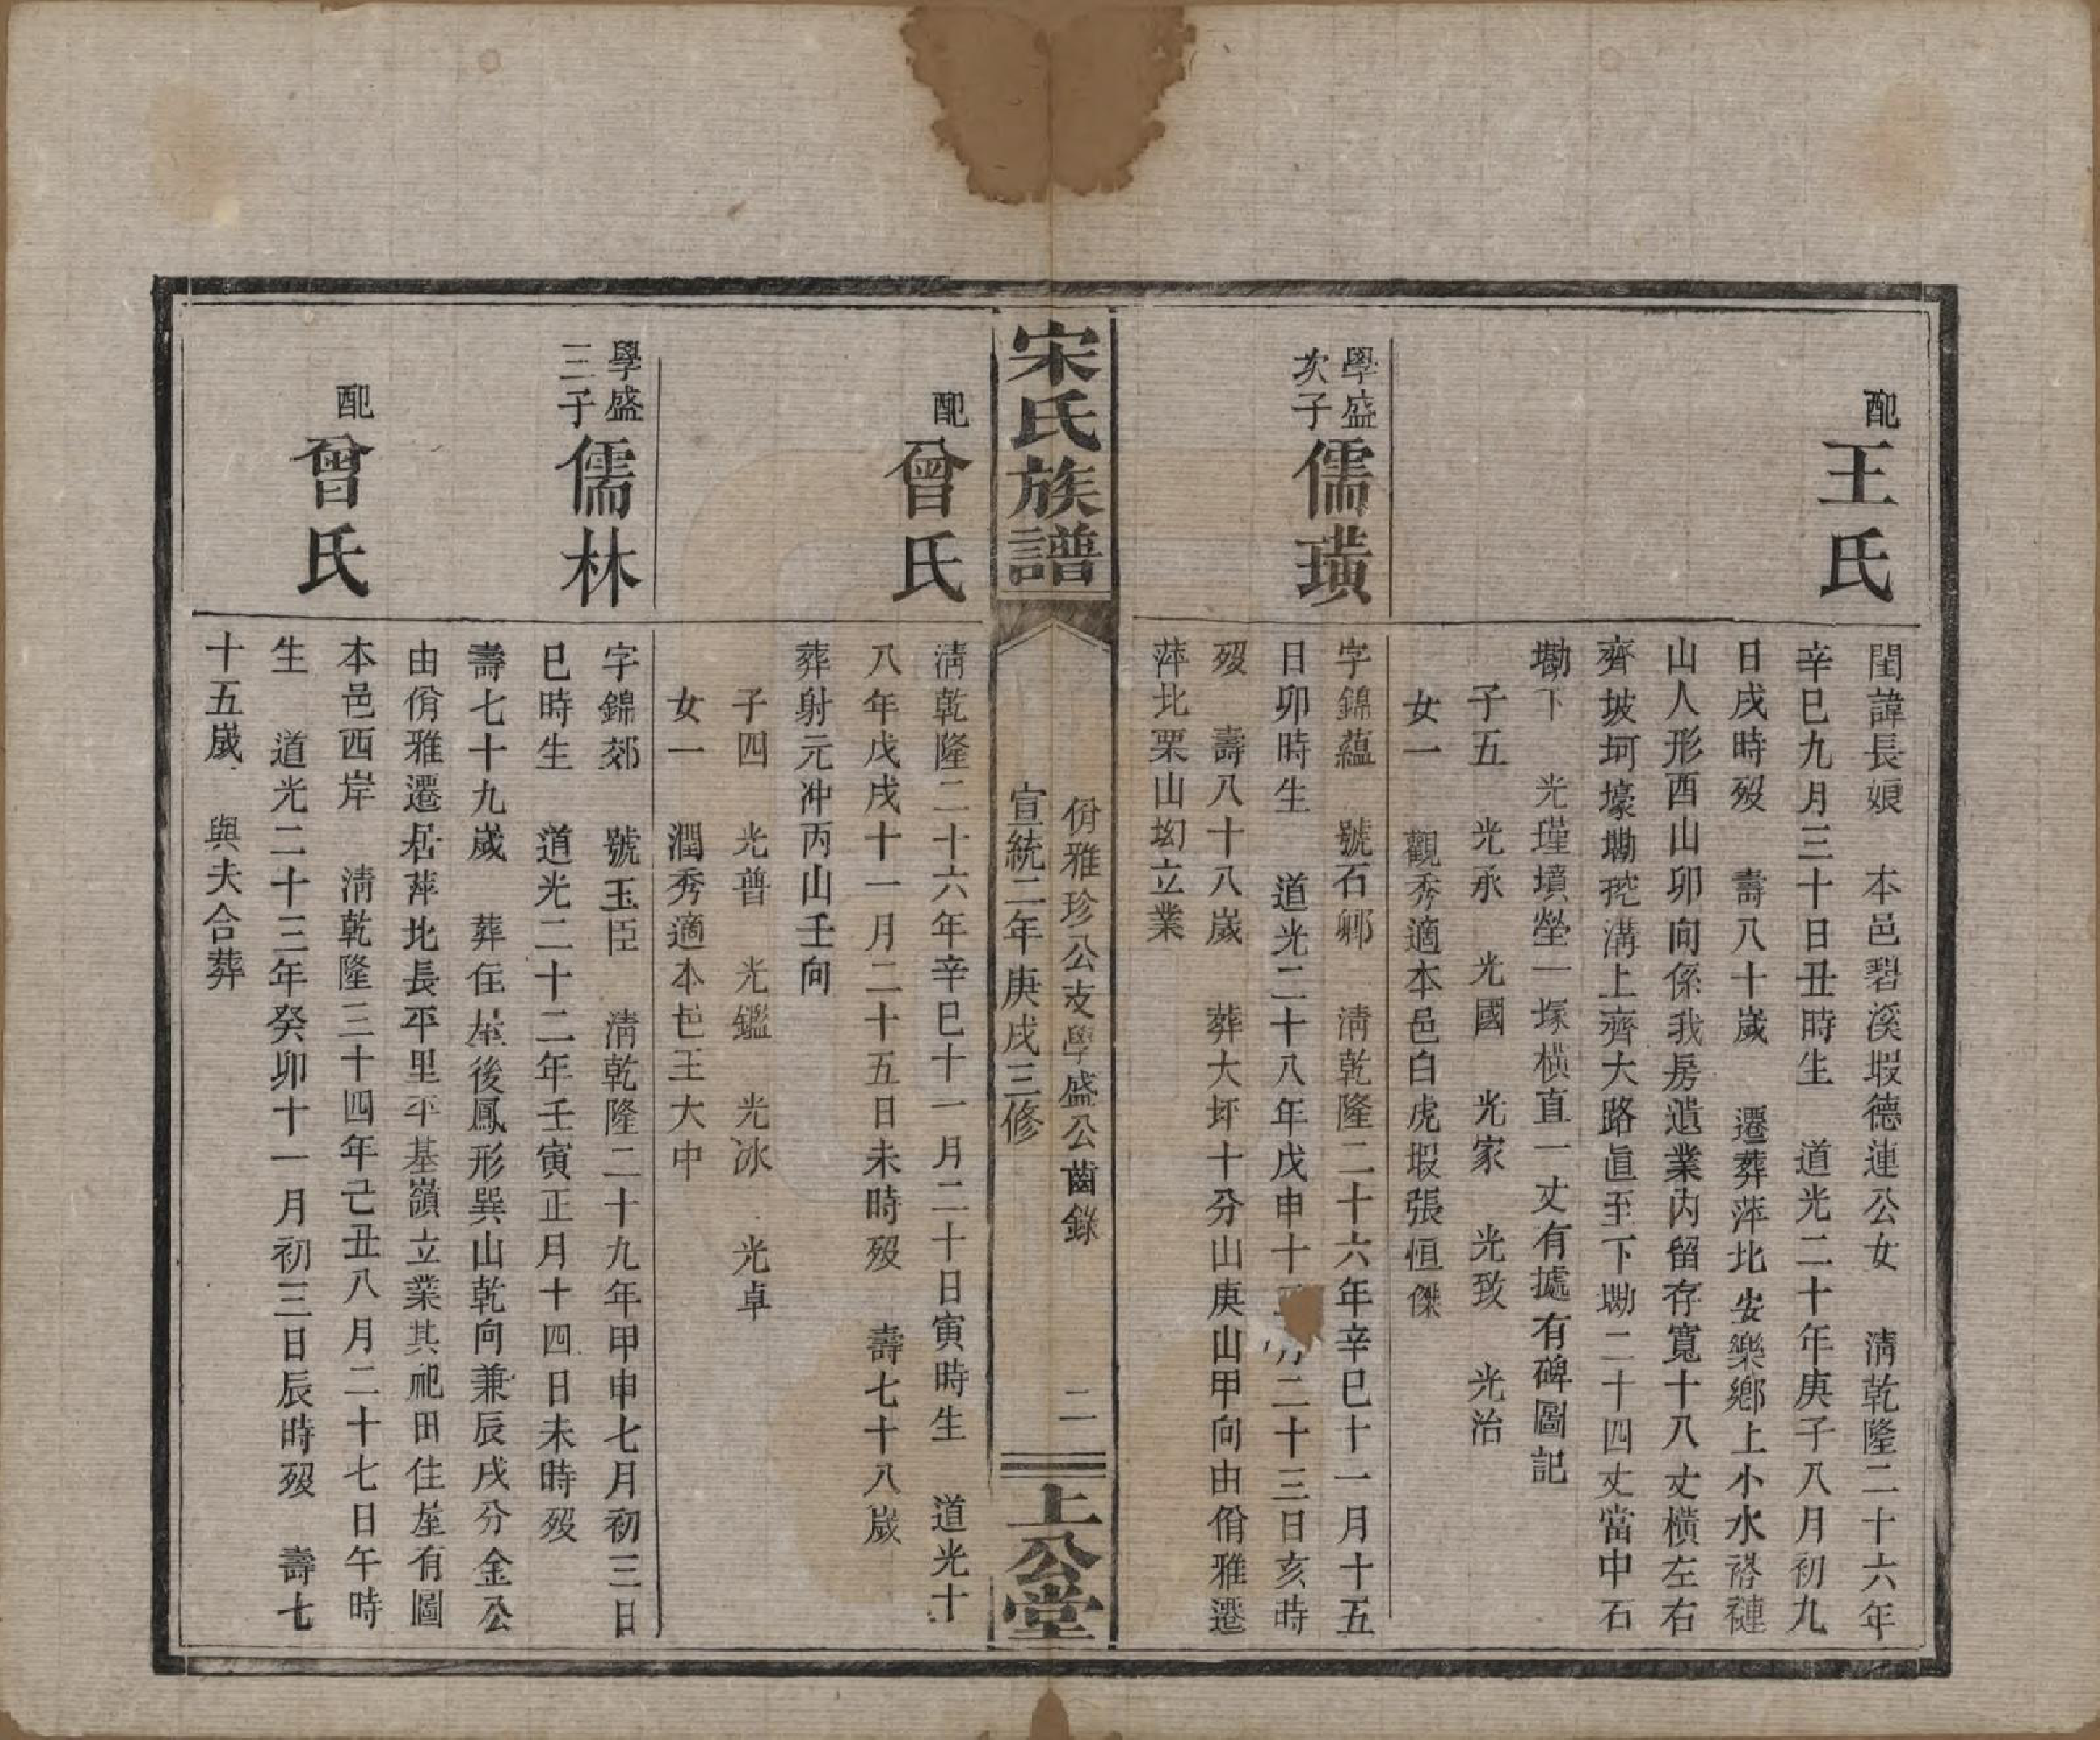 配
王氏
閨諱長娘 本邑碧溪塅德連公女 清乾隆二十六年
辛巳九月三十日丑時生 道光二十年庚子八月初九
日戌時歿 壽八十歲 遷葬萍北安樂鄉上小水䃈褳
山人形酉山卯向係我房遺業内留存寬十八丈橫左右
齊坡坷壕墈挖溝上齊大路直至下墈二十四丈當中石
墈下 光瑾墳塋一塚橫直一丈有據有碑圖記
子五 光承 光國 光家 光致 光治
女一 觀秀適本邑白虎塅張恒傑
學盛
次子
儒璜
字錦蘊 號石鄉 清乾隆二十六年辛巳十一月十五
日卯時生 道光二十八年戊申十 月二十三日亥時
歿 壽八十八歲 葬大坪十分山庚山甲向由佾雅遷
萍北栗山㘭立業
宋氏族譜
佾雅珍公支學盛公齒錄
宣統二年庚戌三修
二
上公堂
配
曾氏
清乾隆二十六年辛巳十一月二十日寅時生 道光十
八年戊戌十一月二十五日未時歿 壽七十八歲
葬射元冲丙山壬向
子四 光普 光鑑 光冰 光卓
女一 潤秀適本邑王大中
學盛
三子
儒林
字錦郊 號玉臣 清乾隆二十九年甲申七月初三日
巳時生 道光二十二年壬寅正月十四日未時歿
壽七十九歲 葬住屋後鳳形巽山乾向兼辰戌分金公
由佾雅遷居萍北長平里平基嶺立業其祀田住屋有圖
配
曾氏
本邑西岸 清乾隆三十四年己丑八月二十七日午時
生 道光二十三年癸卯十一月初三日辰時歿 壽七
十五歲 與夫合葬